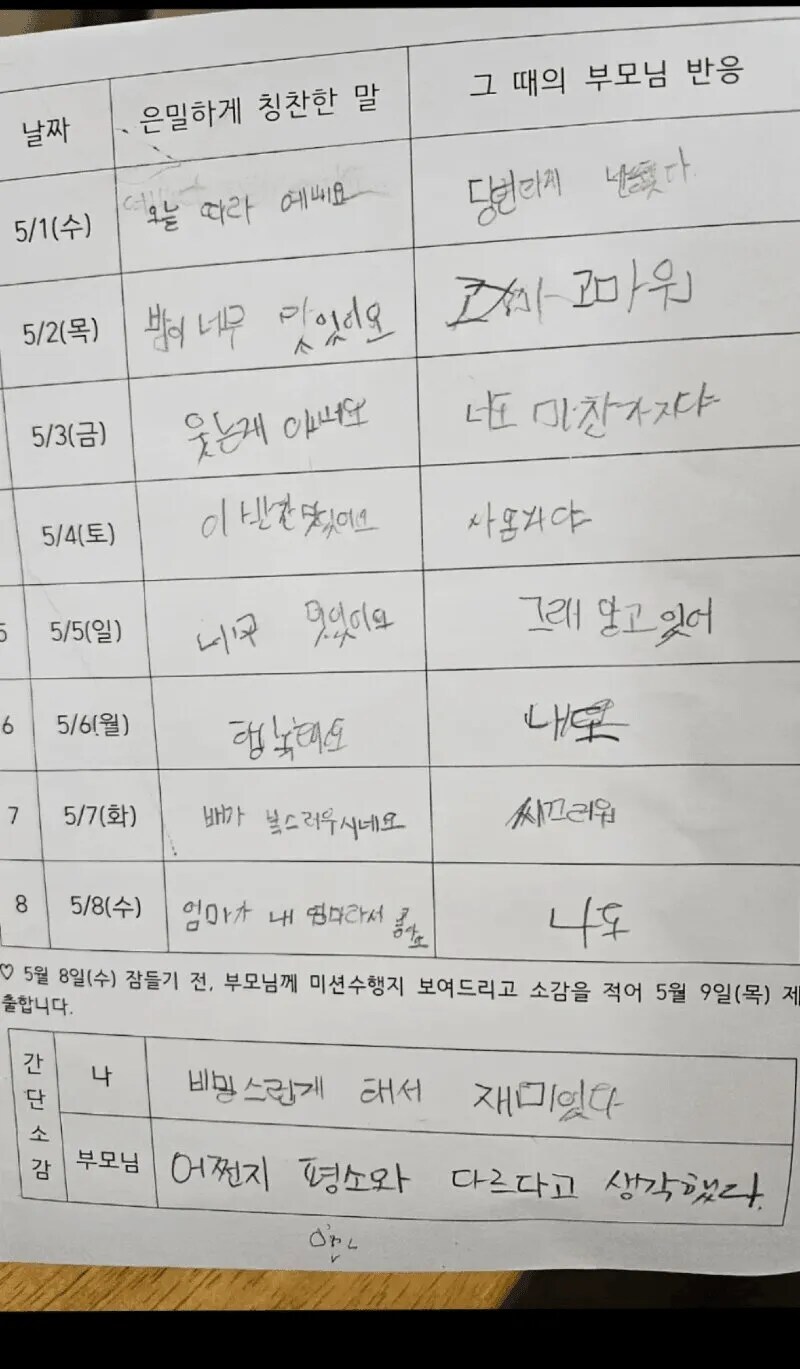 날짜 은밀하게 칭찬한 말 그 때의 부모님 반응
5/1(수) 오늘 따라 예뻐요
5/2(목) 밥이 너무 맛있어요 고마워
5/3(금) 웃는게 이뻐요 너도 마찬가지다
5/4(토) 이 반찬 맛있어요
5 5/5(일) 맛있어요 그래 알고 있어
6 5/6(월) 행복해요 내도
7 5/7(화) 배가 복스러우시네요 씨끄러워
8 5/8(수) 엄마가 내 엄마라서 좋아요 나도
♡ 5월 8일(수) 잠들기 전, 부모님께 미션수행지 보여드리고 소감을 적어 5월 9일(목) 제
출합니다.
간단소감
나 비밍스럽게 해서 재미있다
부모님 어쩐지 평소와 다르다고 생각했다.